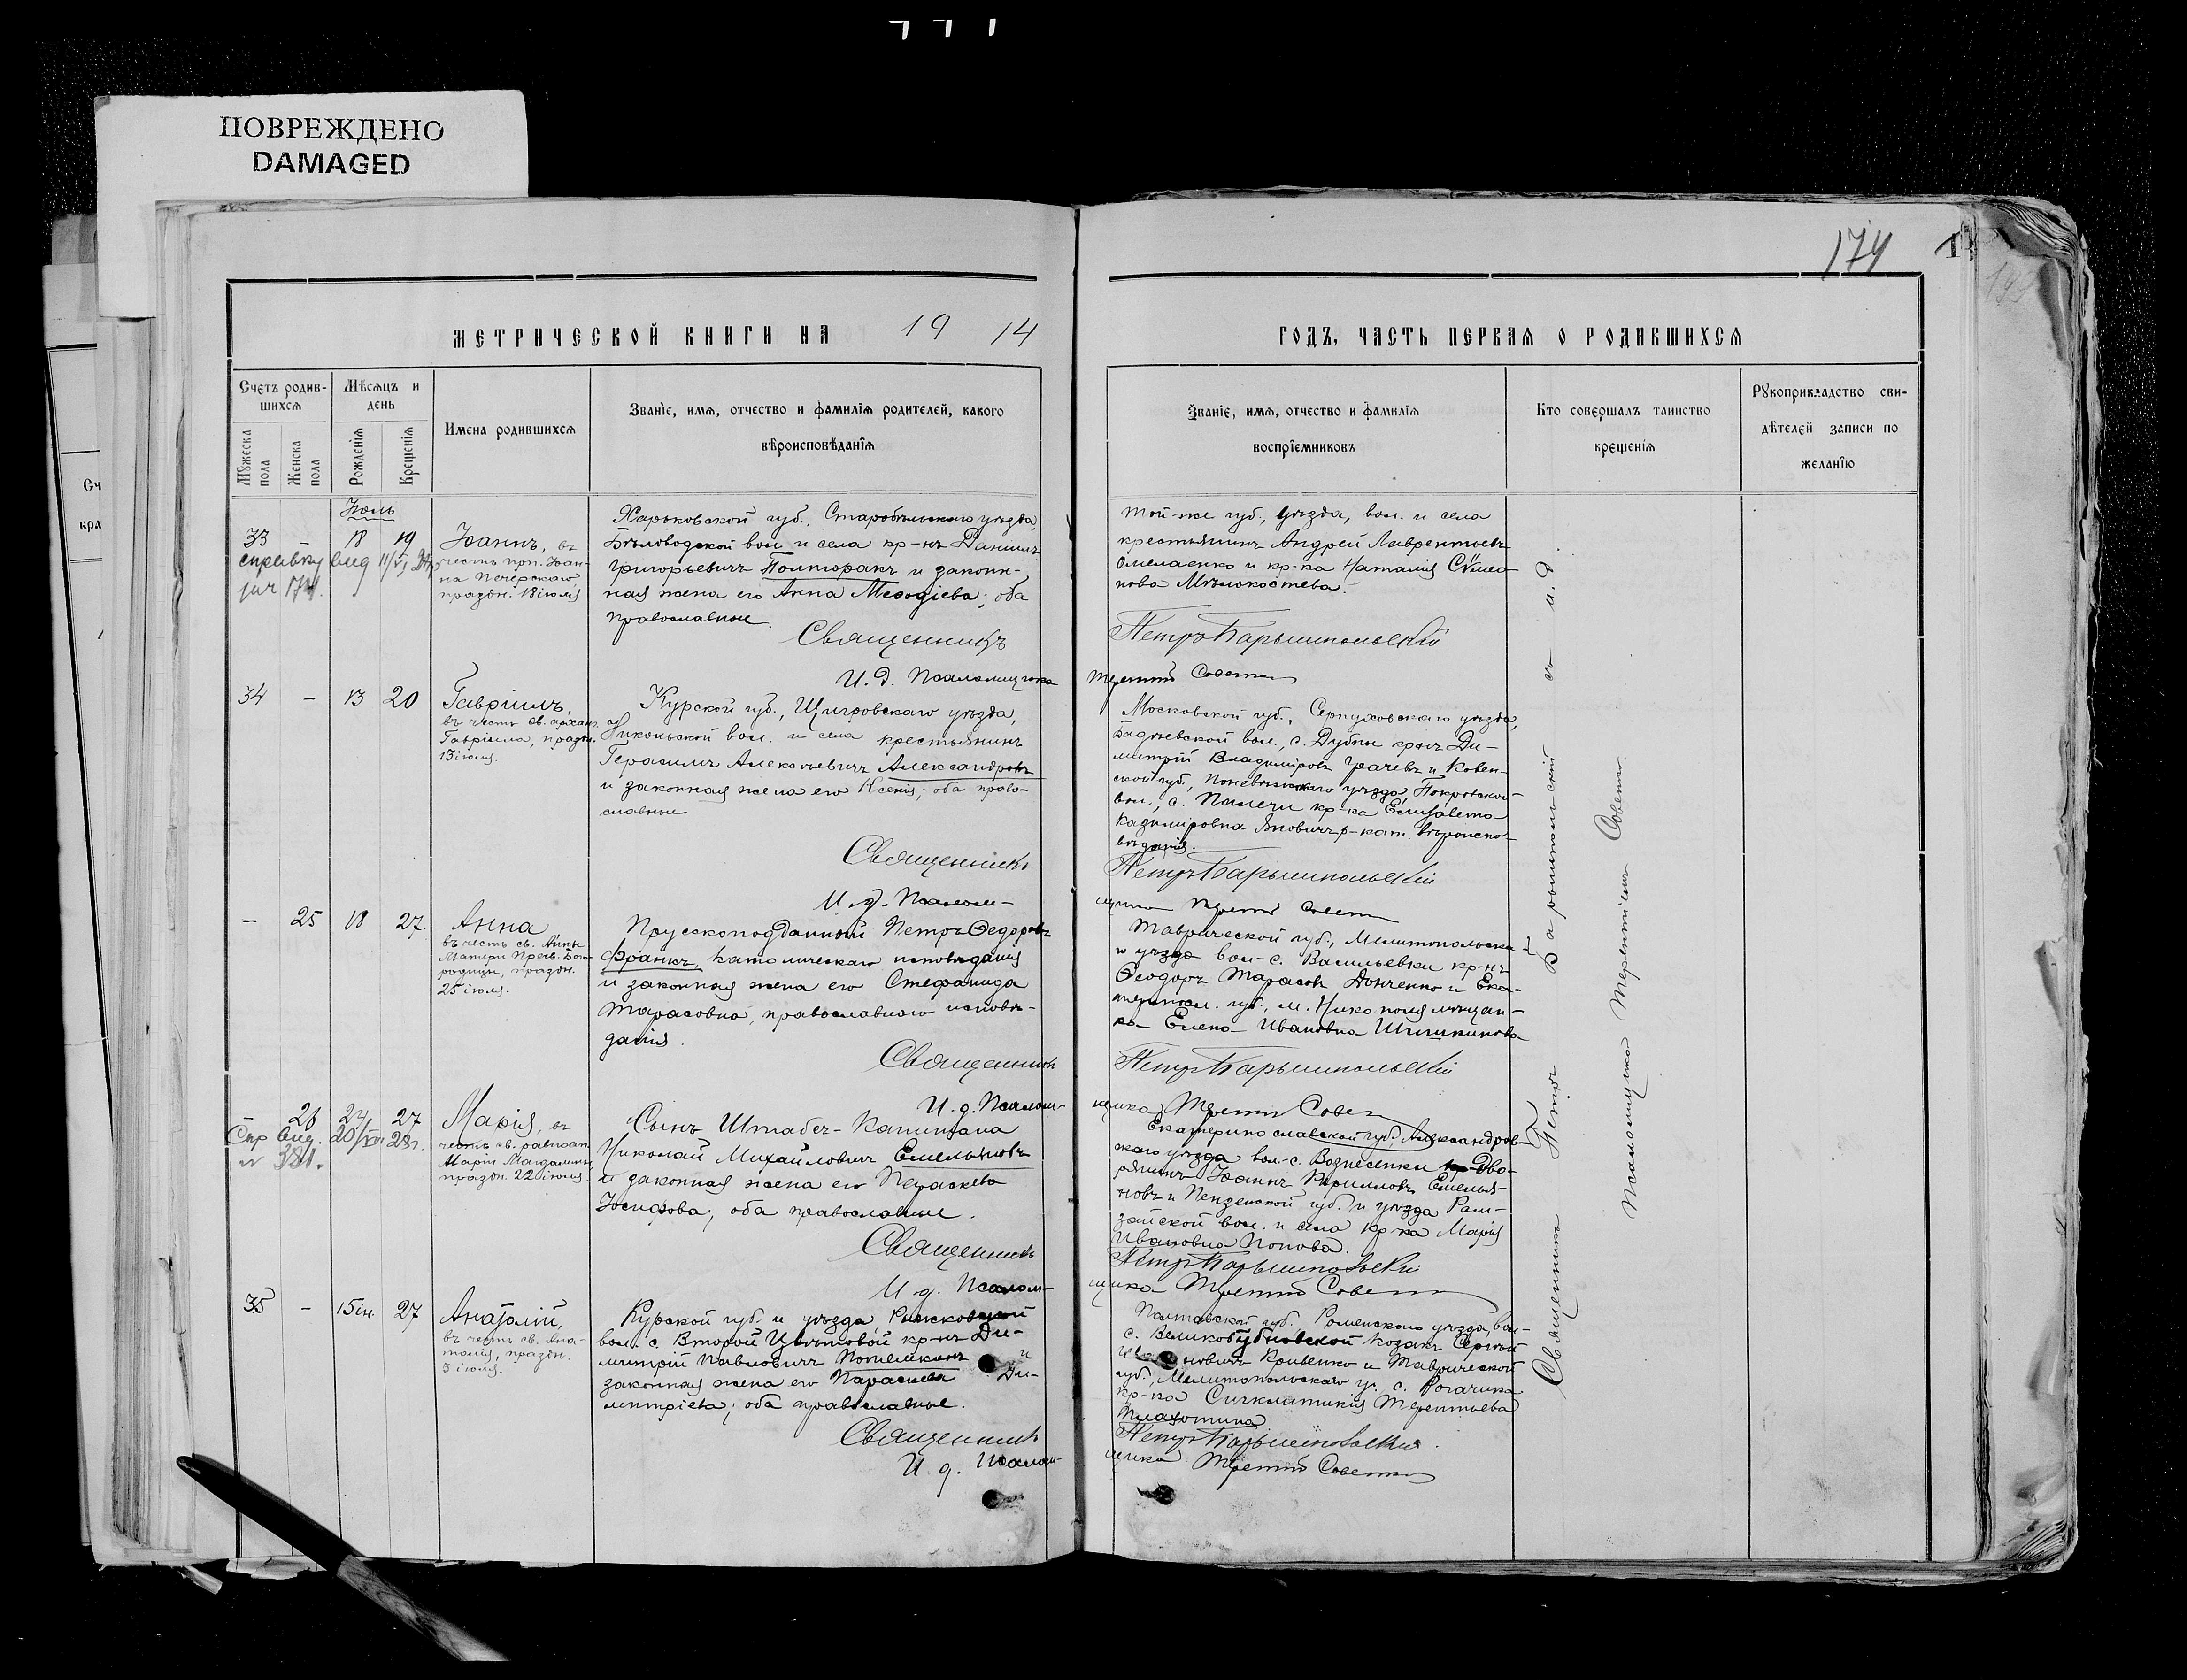 ПОВРЕЖДЕНО
DAMAGED
174
МЕТРИЧЕСКОЙ КНИГИ НА 19 14
ГОДЪ, ЧАСТЬ ПЕРВАЯ О РОДИВШИХСЯ
Счетъ родив-
шихся
Мужеска
пола
Женска
пола
Мѣсяцъ и
день
Рожденія
Крещенія
Имена родившихся
Званіе, имя, отчество и фамилія родителей, какого
вѣроисповѣданія
Званіе, имя, отчество и фамилія
воспріемниковъ
Кто совершалъ таинство
крещенія
Рукоприкладство сви-
дѣтелей записи по
желанію
33
18 19
Іоаннъ, въ
честь прп. Іоан-
на Печерскаго
праздн. 18 іюля
Харьковской губ., Старобѣльскаго уѣзда,
Бѣловодской вол. и села кр-нъ Даніилъ
Григорьевичъ Полторакъ и закон-
ная жена его Анна Меѳодіева; оба
православные.
Священникъ
И. д. Псаломщика
той-же губ., уѣзда, вол. и села
крестьянинъ Андрей Лаврентьевъ
Омелаенко и кр-ка Наталія
Петръ Барышпольскій
Терентій Совет
34 – 13 20
Гавріилъ,
въ честь св. архан.
Гавріила, праздн.
13 іюля.
Курской губ., Щигровскаго уѣзда,
Никольской вол. и села крестьянинъ
Герасимъ Алексѣевичъ Александровъ
и законная жена его Ксенія; оба право-
славные
Священникъ
И. д. Псалом-
Московской губ., Серпуховскаго уѣзда,
вол., с. Дубны кр-нъ Ди-
митрій Владиміровъ Грачевъ и Ковен-
ской губ., уѣзда, Покровской
вол., с. кр-ка Елизавета
Казиміровна р-кат. вѣроиспо-
вѣданія.
Петръ Барышпольскій
щика Терентій Совет
– 25 18 27.
Анна
въ честь св. Анны
Матери Пресв. Бого-
родицы, праздн.
25 іюля.
Прусскоподданный Петръ Ѳедоровъ
Франкъ, католическаго исповѣданія
и законная жена его Стефанида
Тарасовна, православнаго исповѣ-
данія.
Священникъ
И. д. Псалом-
Таврической губ., Мелитопольска-
го уѣзда вол. с. Васильевки кр-нъ
Ѳеодоръ Тарасовъ Донченко и Ека-
териносл. губ., м. Никополя мѣщан-
ка Елена Ивановна Шишкинова
Петръ Барышпольскій
щика Терентій Совет
26 24 27
Марія, въ
честь св. равноап.
Маріи Магдалины
праздн. 22 іюля.
Сынъ Штабсъ-Капитана
Николай Михайловичъ Емельяновъ
и законная жена его Параскева
Іосифова; оба православные.
Священникъ
И. д. Псалом-
Екатеринославской губ., Александров-
скаго уѣзда вол. с. Вознесенки Дво-
рянинъ Іоаннъ Кирилловъ Емелья-
новъ и Пензенской губ. и уѣзда Рам-
зайской вол. и села кр-ка Марія
Ивановна Попова.
Петръ Барышпольскій
щика Терентій Совет
35 – 15 іюн. 27
Анатолій,
въ честь св. Ана-
толія, праздн.
3 іюля.
Курской губ. и уѣзда, Рышковской
вол. с. Второй Цвѣтовой кр-нъ Ди-
митрій Павловичъ Потемкинъ и
законная жена его Параскева Ди-
митріева; оба православные.
Священникъ
И. д. Псалом-
Полтавской губ. Роменскаго уѣзда, вол.
с. Великобубновской козакъ Сергій
Кривенко и Таврической
губ., Мелитопольскаго у. с. Рогачика
кр-ка Синклитикія Терентьева
Петръ Барышпольскій.
щика Терентій Совет
Священникъ Петръ Барышпольскій съ и. д.
Псаломщика Терентіемъ Совет